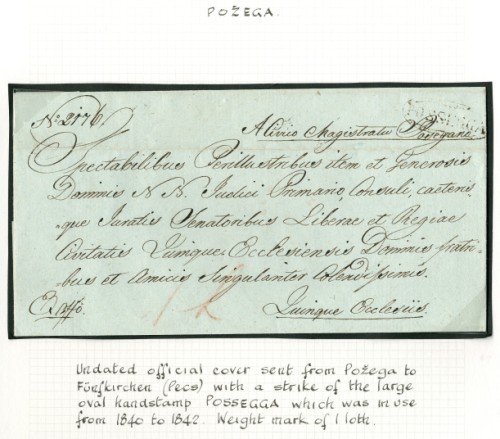 POŽEGA.
No. 2176.
POSSEGA
A Civico Magistratu Posegano
Spectabilibus Perillustribus item et Generosis
Dominis N N. Judici Primario, Consuli, caeteris
que Juratis Senatoribus Liberae et Regiae
Civitatis Quinque Ecclesiensis Dominis fratri-
bus et Amicis Singulariter Colendissimis.
Quinque Ecclesiis.
Undated official cover sent from Požega to
Fünfkirchen (Pecs) with a strike of the large
oval handstamp POSSEGGA which was in use
from 1840 to 1842. Weight mark of 1 loth.